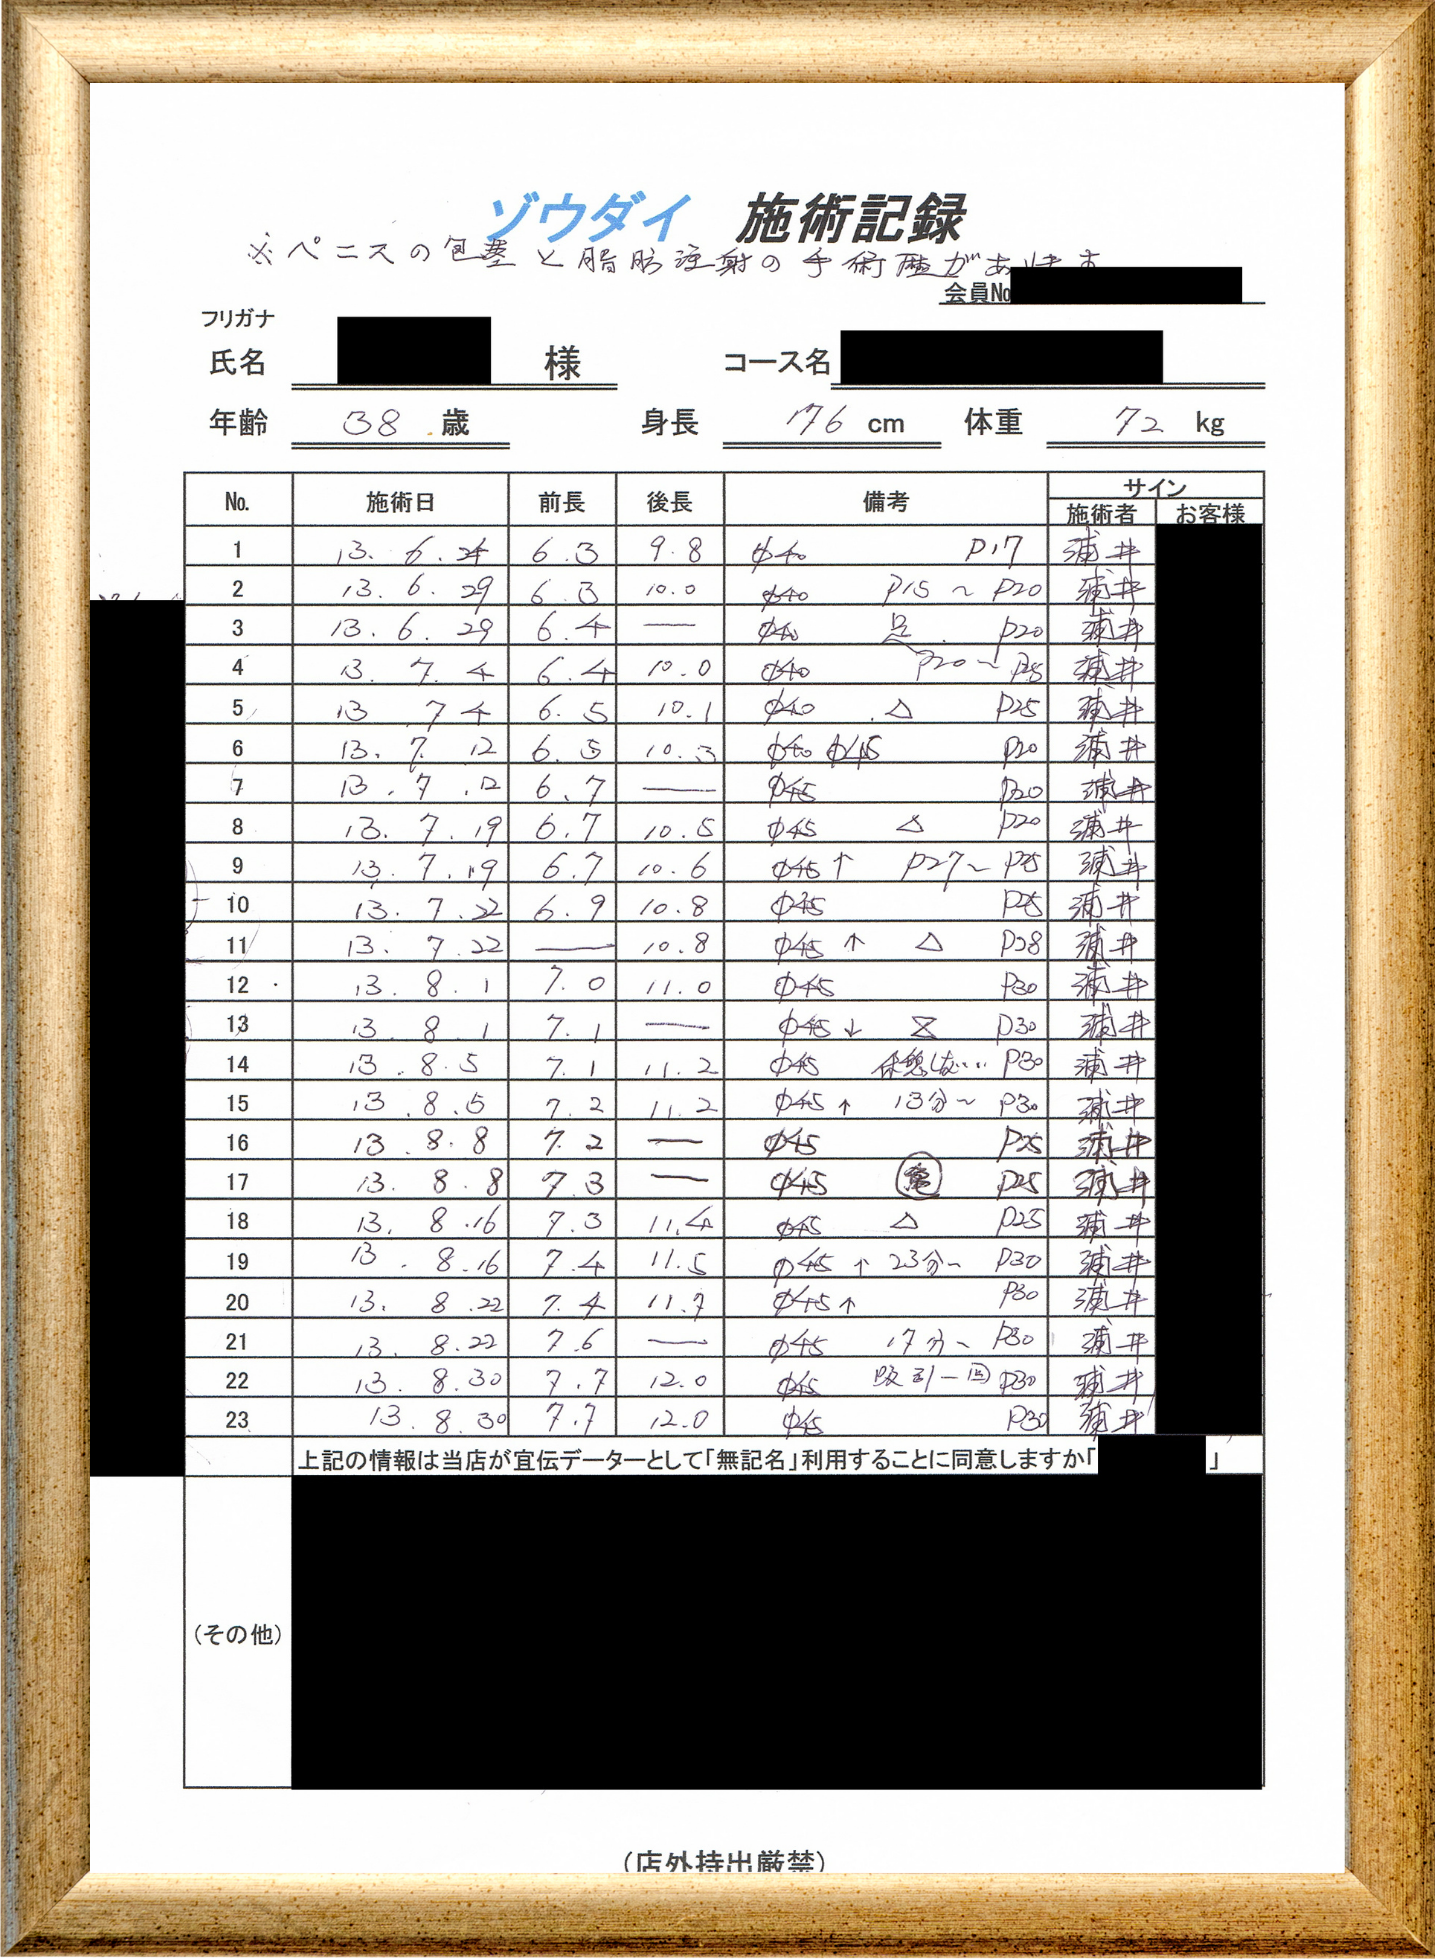 ゾウダイ 施術記録
※ペニスの包茎と脂肪注射の手術歴があります
会員No
フリガナ
氏名 様 コース名
年齢 38 歳 身長 176 cm 体重 72 kg
No. 施術日 前長 後長 備考 サイン
施術者 お客様
1 13. 6. 24 6.3 9.8 φ40 P17 浦井
2 13. 6. 29 6.3 10.0 φ40 P15～P20 浦井
3 13. 6. 29 6.4 — φ40 P20 浦井
4 13. 7. 4 6.4 10.0 φ40 P20～P25 浦井
5 13 7 4 6.5 10.1 φ40 △ P25 浦井
6 13. 7. 12 6.5 10.3 φ40 φ45 P20 浦井
7 13. 7. 12 6.7 — φ45 P20 浦井
8 13. 7. 19 6.7 10.5 φ45 △ P20 浦井
9 13. 7. 19 6.7 10.6 φ45↑ P27～P25 浦井
10 13. 7. 22 6.9 10.8 φ45 P25 浦井
11 13. 7. 22 — 10.8 φ45↑ △ P28 浦井
12 13. 8. 1 7.0 11.0 φ45 P30 浦井
13 13. 8. 1 7.1 — φ45↓ P30 浦井
14 13. 8. 5 7.1 11.2 φ45 P30 浦井
15 13. 8. 5 7.2 11.2 φ45↑ 13分～ P30 浦井
16 13. 8. 8 7.2 — φ45 P25 浦井
17 13. 8. 8 7.3 — φ45 P25 浦井
18 13. 8. 16 7.3 11.4 φ45 △ P25 浦井
19 13. 8. 16 7.4 11.5 φ45↑ 23分～ P30 浦井
20 13. 8. 22 7.4 11.7 φ45↑ P30 浦井
21 13. 8. 22 7.6 — φ45 17分～ P30 浦井
22 13. 8. 30 7.7 12.0 φ45 吸引一回 P30 浦井
23 13. 8. 30 7.7 12.0 φ45 P30 浦井
上記の情報は当店が宣伝データーとして「無記名」利用することに同意しますか「 」
(その他)
(店外持出厳禁)